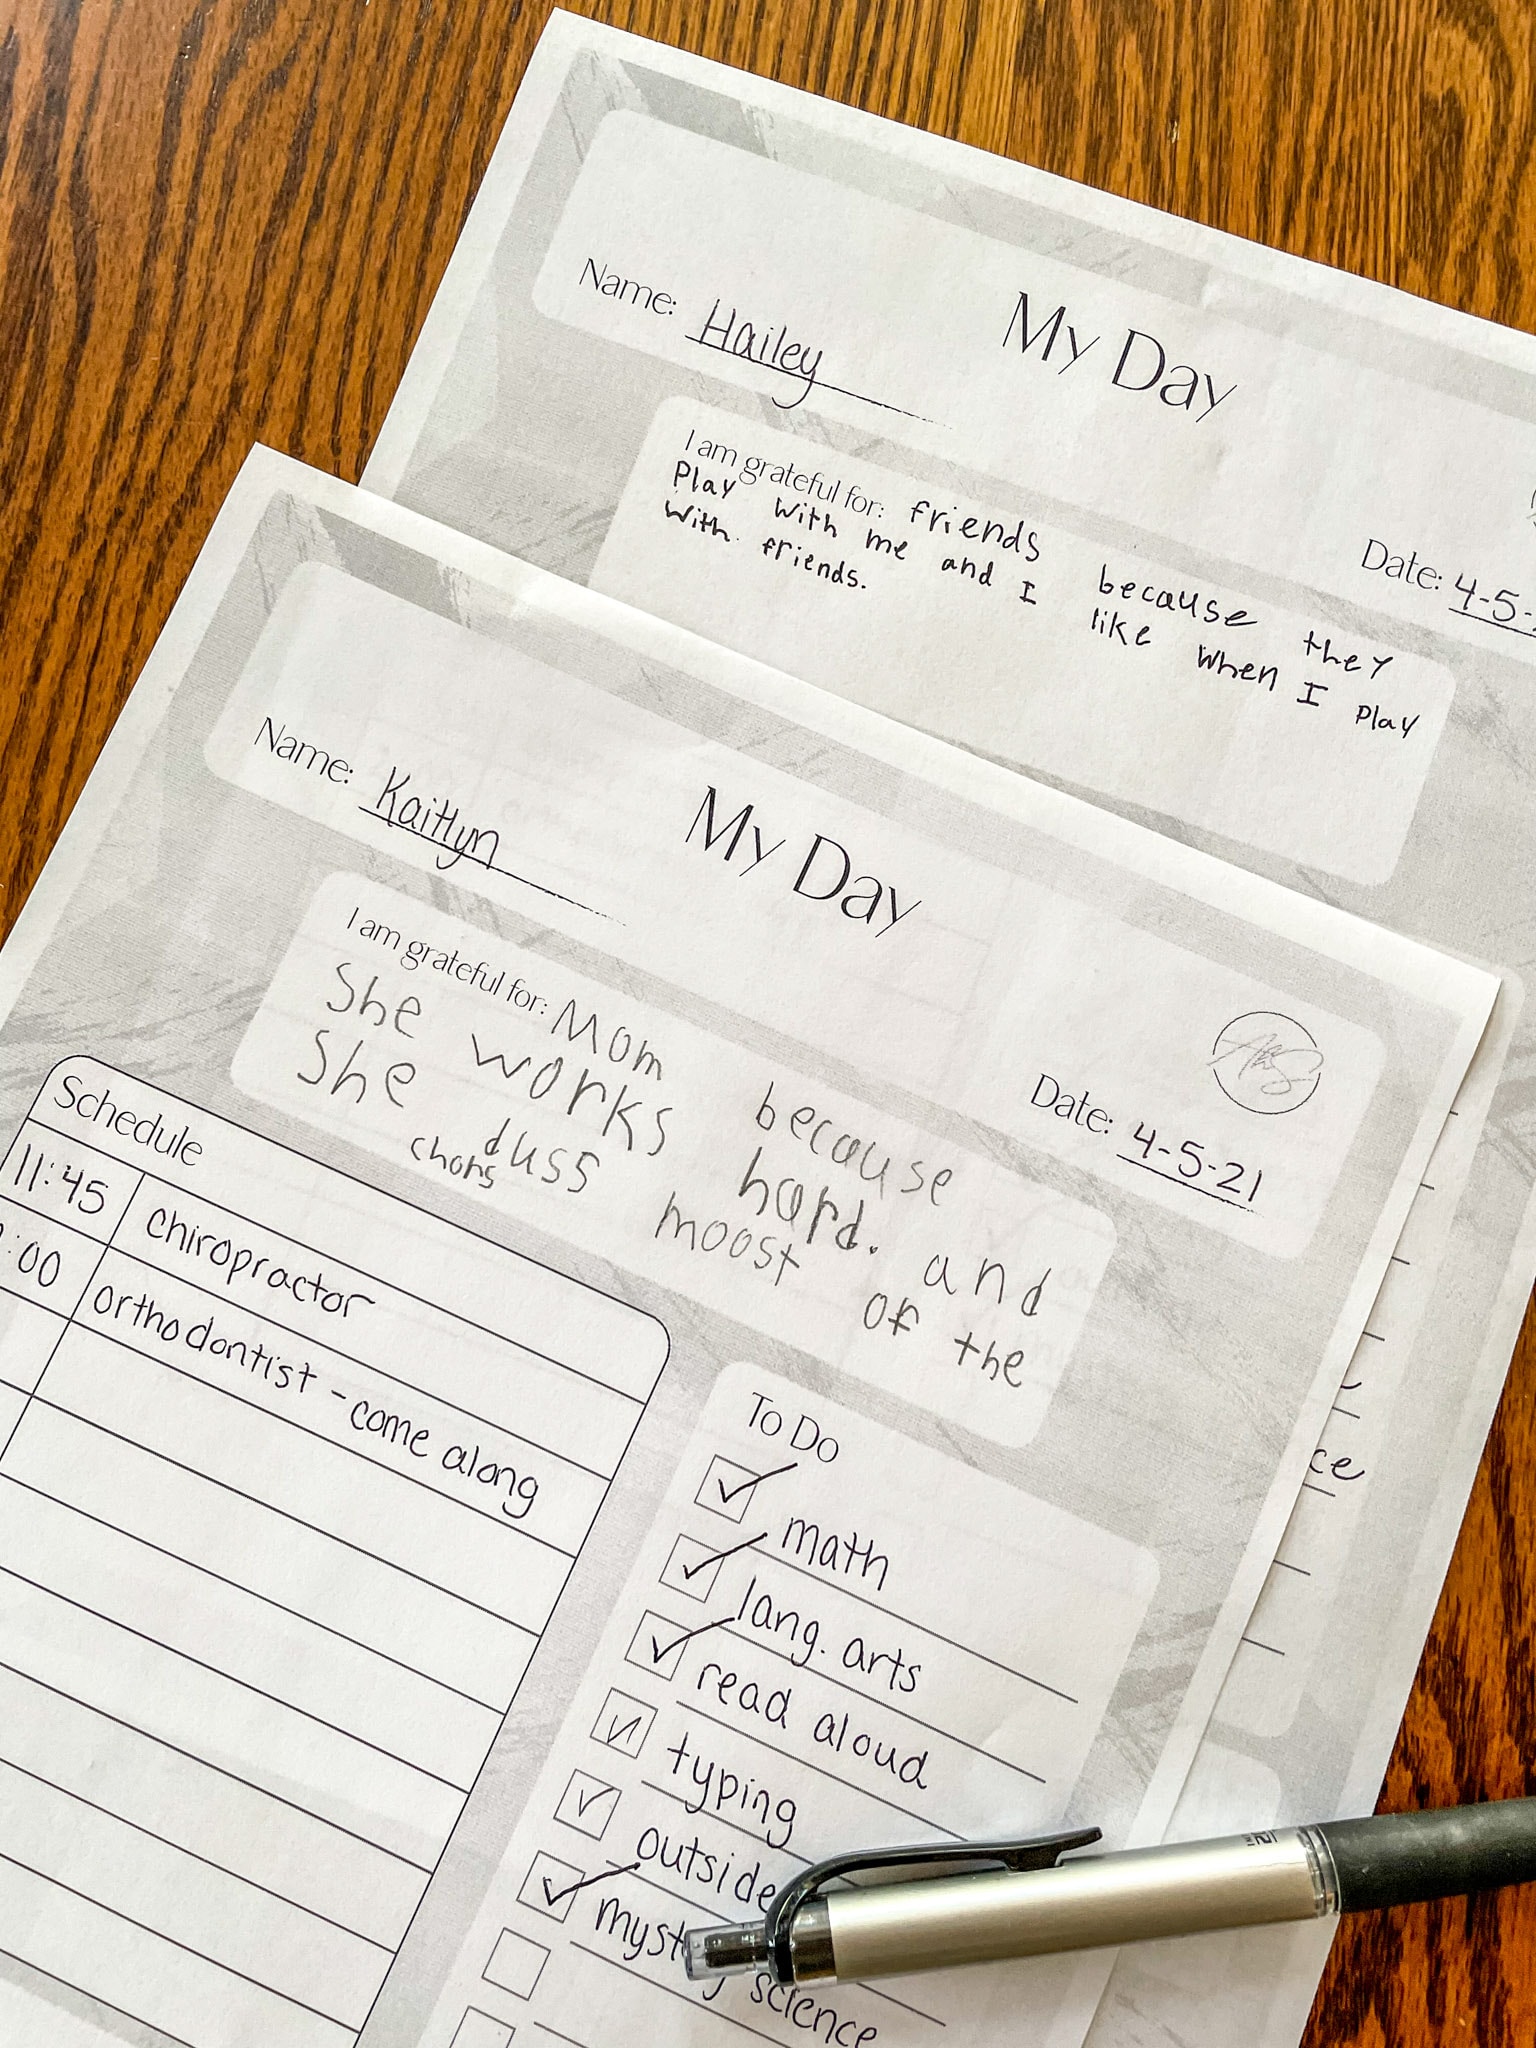 My Day
Name: Hailey
Date: 4-5-
I am grateful for: friends because they
Play with me and I like when I play
with friends.
My Day
Name: Kaitlyn
Date: 4-5-21
I am grateful for: Mom because
She works hard. and
She duss moost of the
chors
Schedule
11:45 chiropractor
:00 orthodontist - come along
To Do
math
lang. arts
read aloud
typing
outside
mystery science
ce